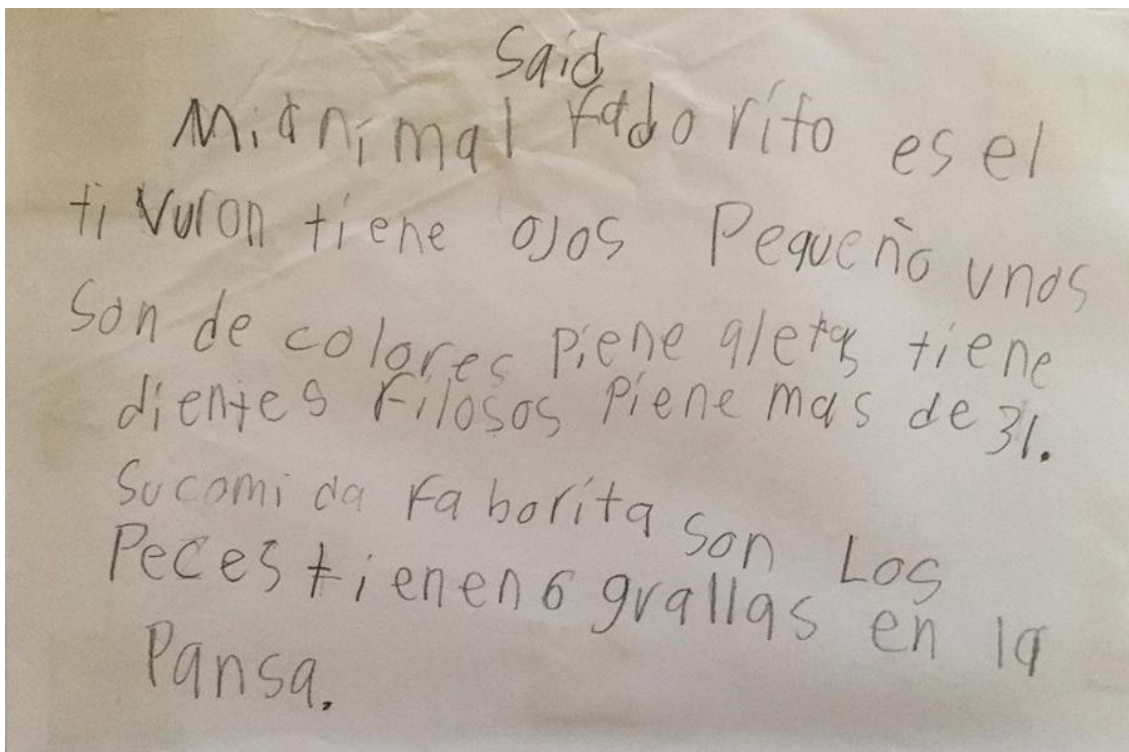 Said
Mi animal fadorito es el
tivuron tiene ojos Pequeño unos
son de colores piene aletas tiene
dientes Filosos Piene mas de 31.
Su comida faborita son Los
Peces tienen 6 grallas en la
Pansa.